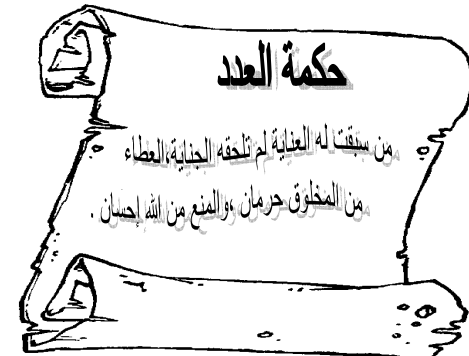 حكمة العدد
من سبقت له العناية لم تلحقه الجناية،العطاء
من المخلوق حرمان ،والمنع من الله إحسان .